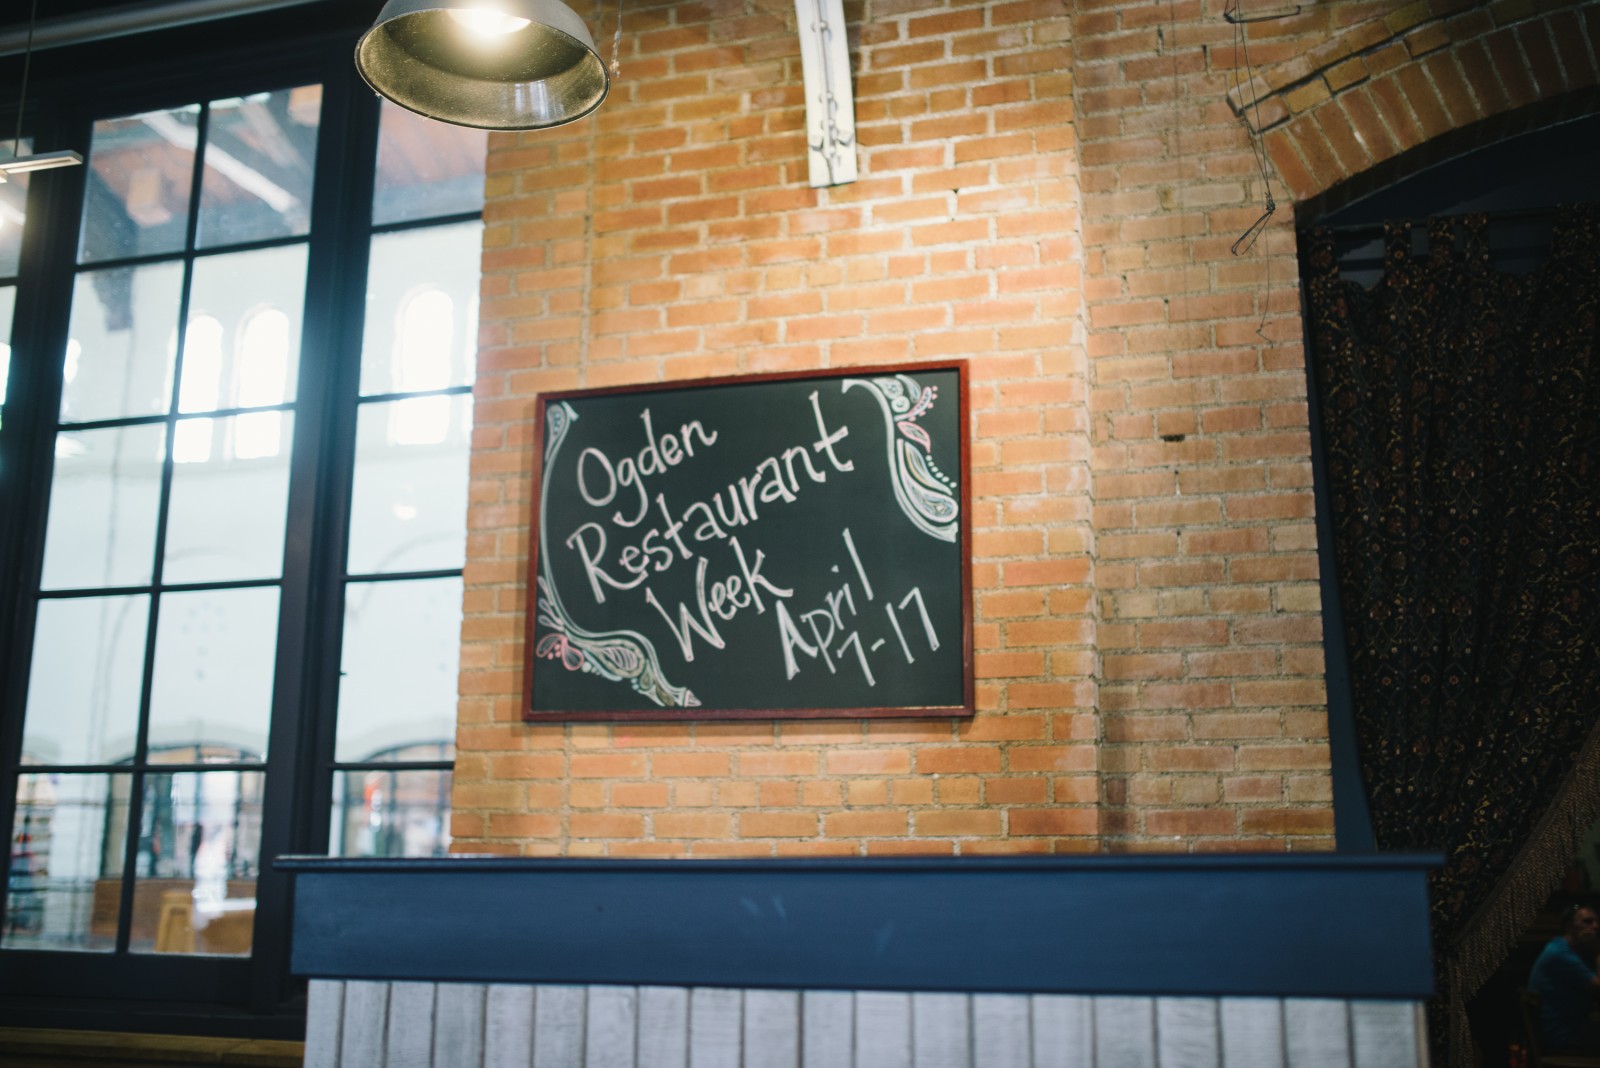 Ogden
Restaurant
Week
April
7-17